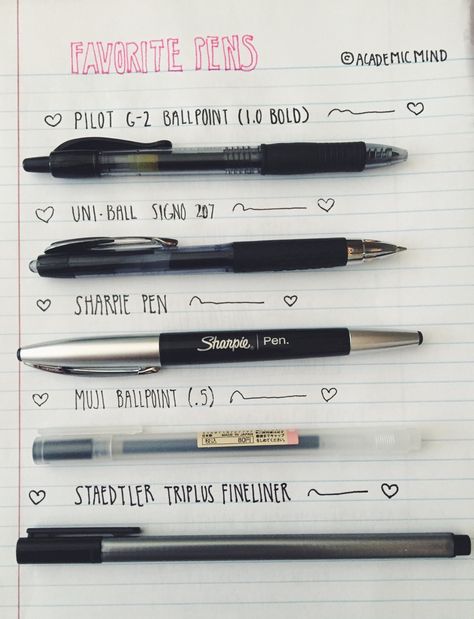 FAVORITE PENS
© ACADEMICMIND
PILOT G-2 BALLPOINT (1.0 BOLD)
UNI-BALL SIGNO 207
SHARPIE PEN
Sharpie. Pen.
MUJI BALLPOINT (.5)
税込 80円
STAEDTLER TRIPLUS FINELINER